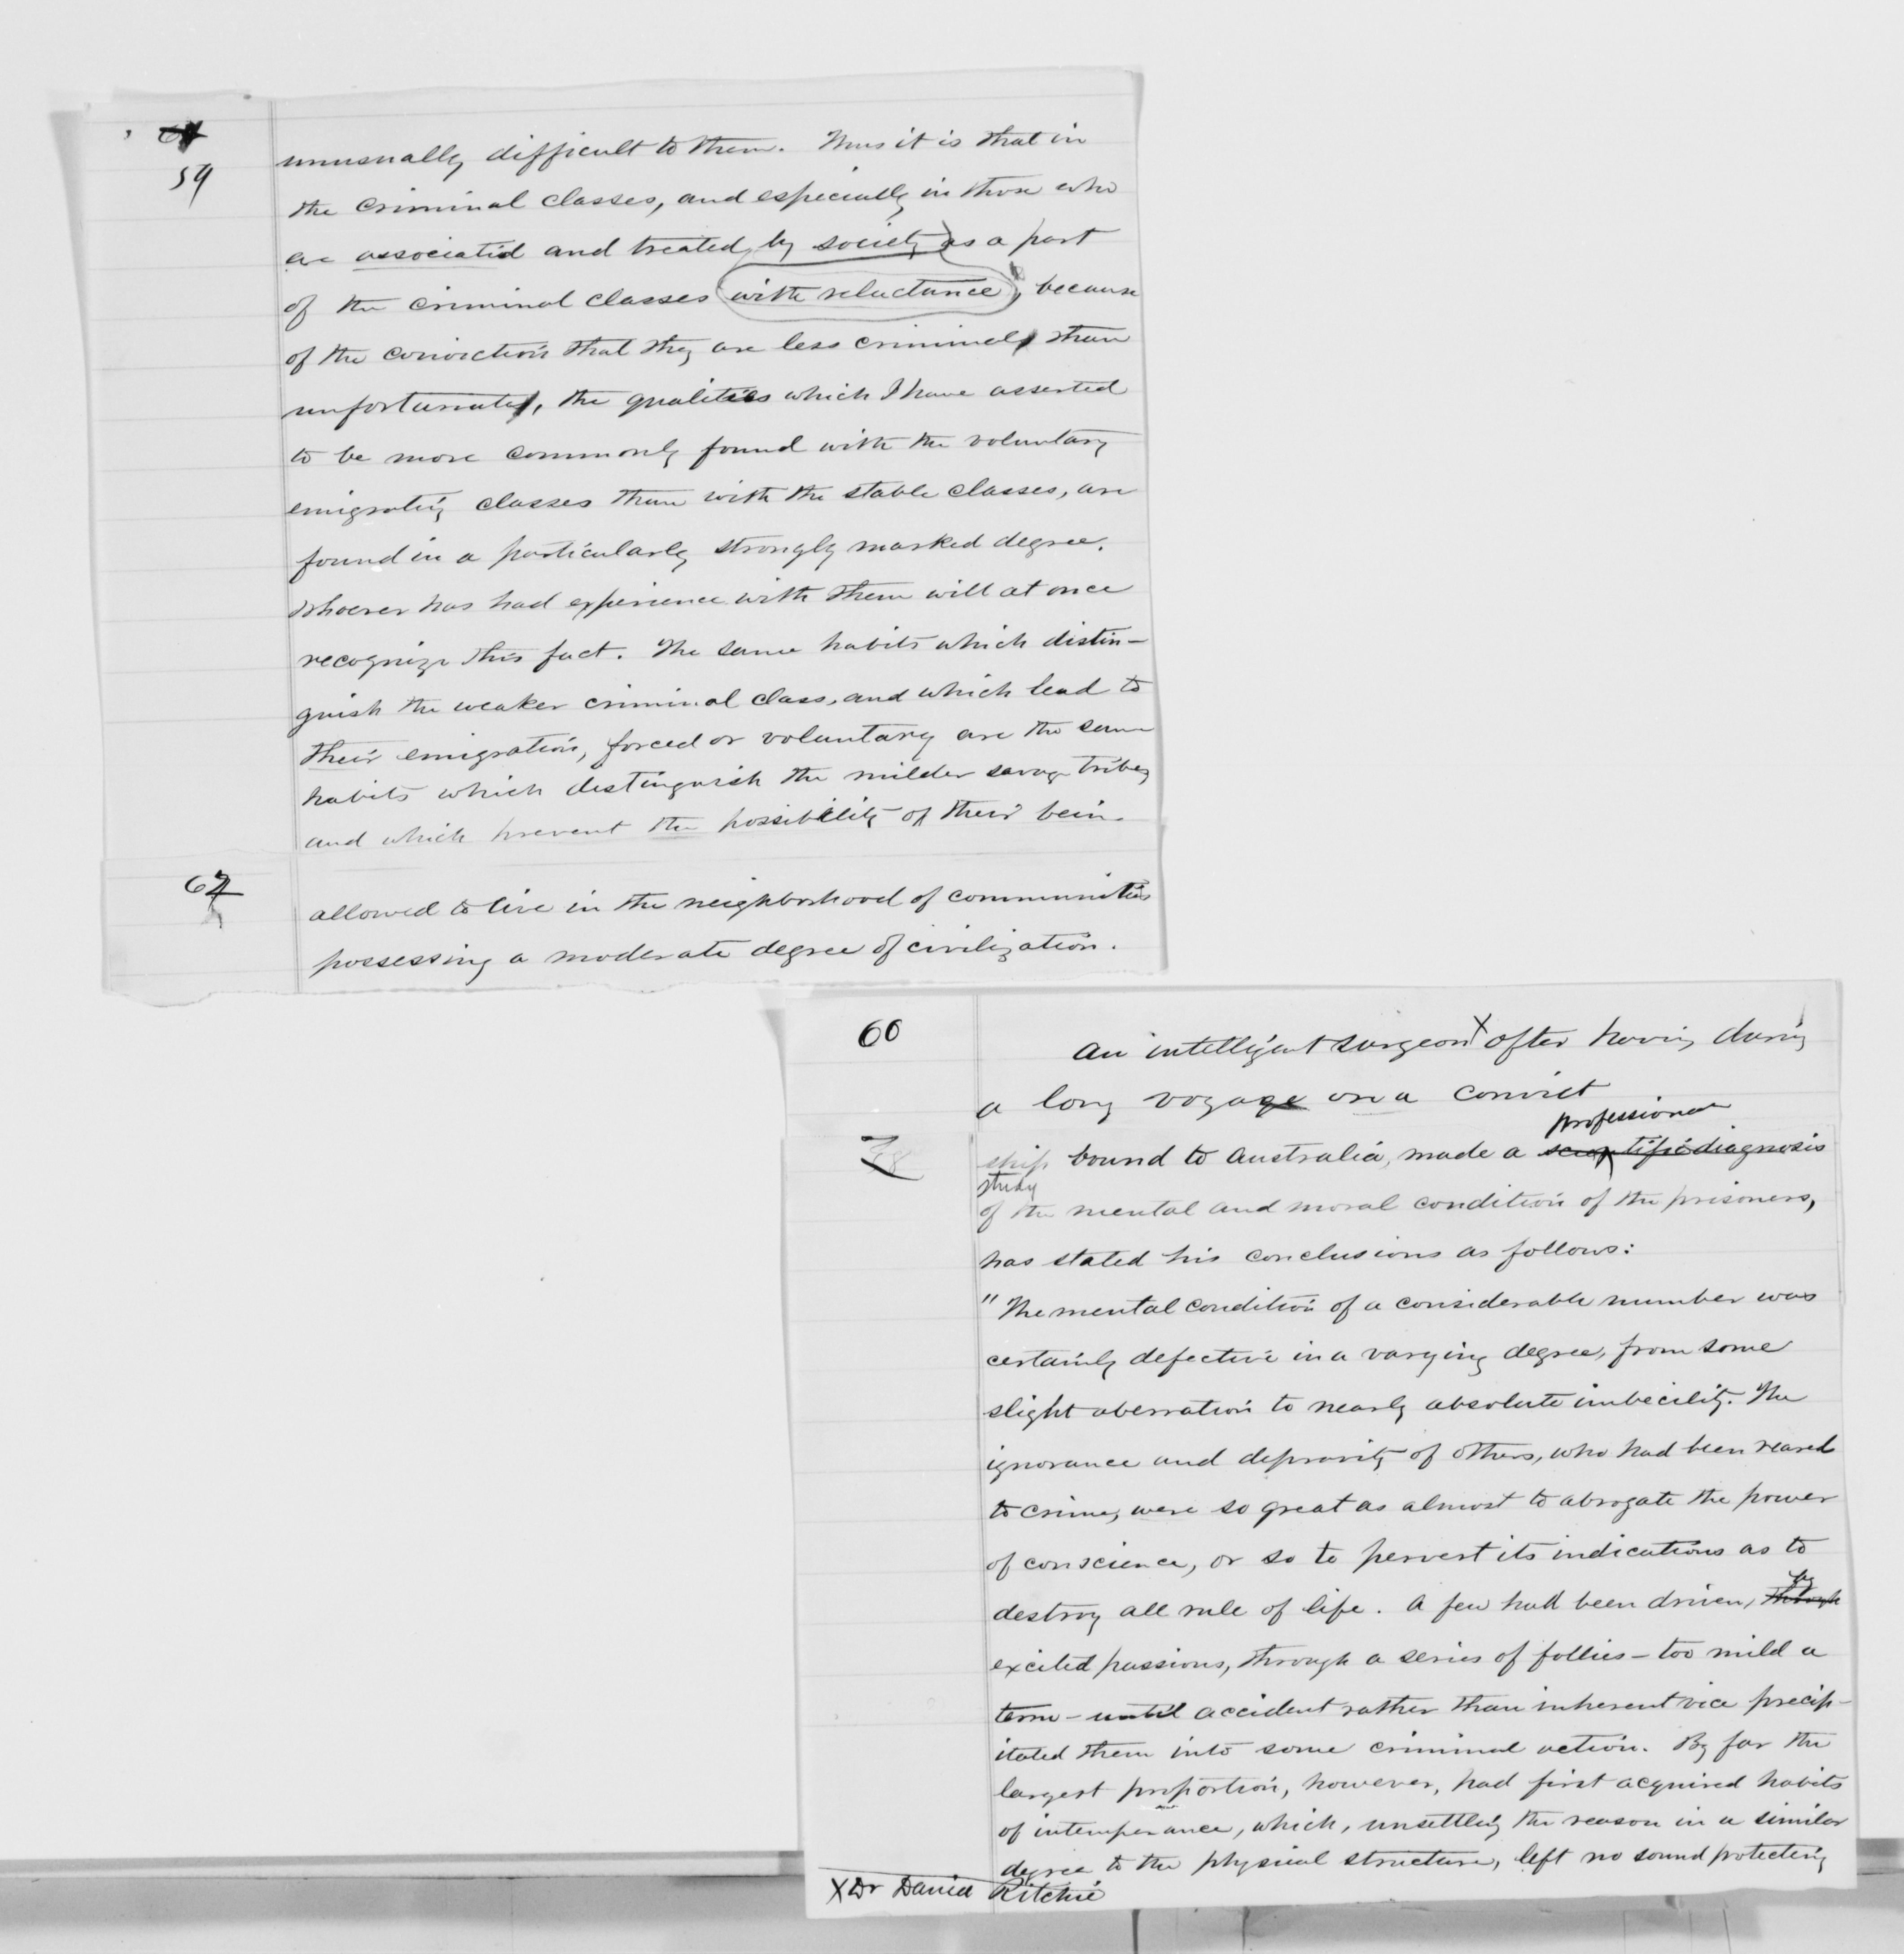 59
unusually difficult to them. Thus it is that in
the criminal classes, and especially in those who
are associated and treated by society as a part
of the criminal classes with reluctance, because
of the conviction that they are less criminal than
unfortunate, the qualities which I have asserted
to be more commonly found with the voluntary
emigrating classes than with the stable classes, are
found in a particularly strongly marked degree.
Whoever has had experience with them will at once
recognize this fact. The same habits which distin-
guish the weaker criminal class, and which lead to
their emigration, forced or voluntary are the same
habits which distinguish the milder savage tribes
and which prevent the possibility of their being
62
allowed to live in the neighborhood of communities
possessing a moderate degree of civilization.
60
An intelligent surgeon X after having during
a long voyage on a convict
professional
ship bound to Australia, made a scientific diagnosis
study
of the mental and moral condition of the prisoners,
has stated his conclusions as follows:
"The mental condition of a considerable number was
certainly defective in a varying degree, from some
slight aberration to nearly absolute imbecility. The
ignorance and depravity of others, who had been reared
to crime, were so great as almost to abrogate the power
of conscience, or so to pervert its indications as to
by
destroy all rule of life. A few had been driven, through
excited passions, through a series of follies – too mild a
term – until accident rather than inherent vice precip-
itated them into some criminal action. By far the
largest proportion, however, had first acquired habits
of intemperance, which, unsettling the reason in a similar
degree to the physical structure, left no sound protecting
X Dr David Ritchie